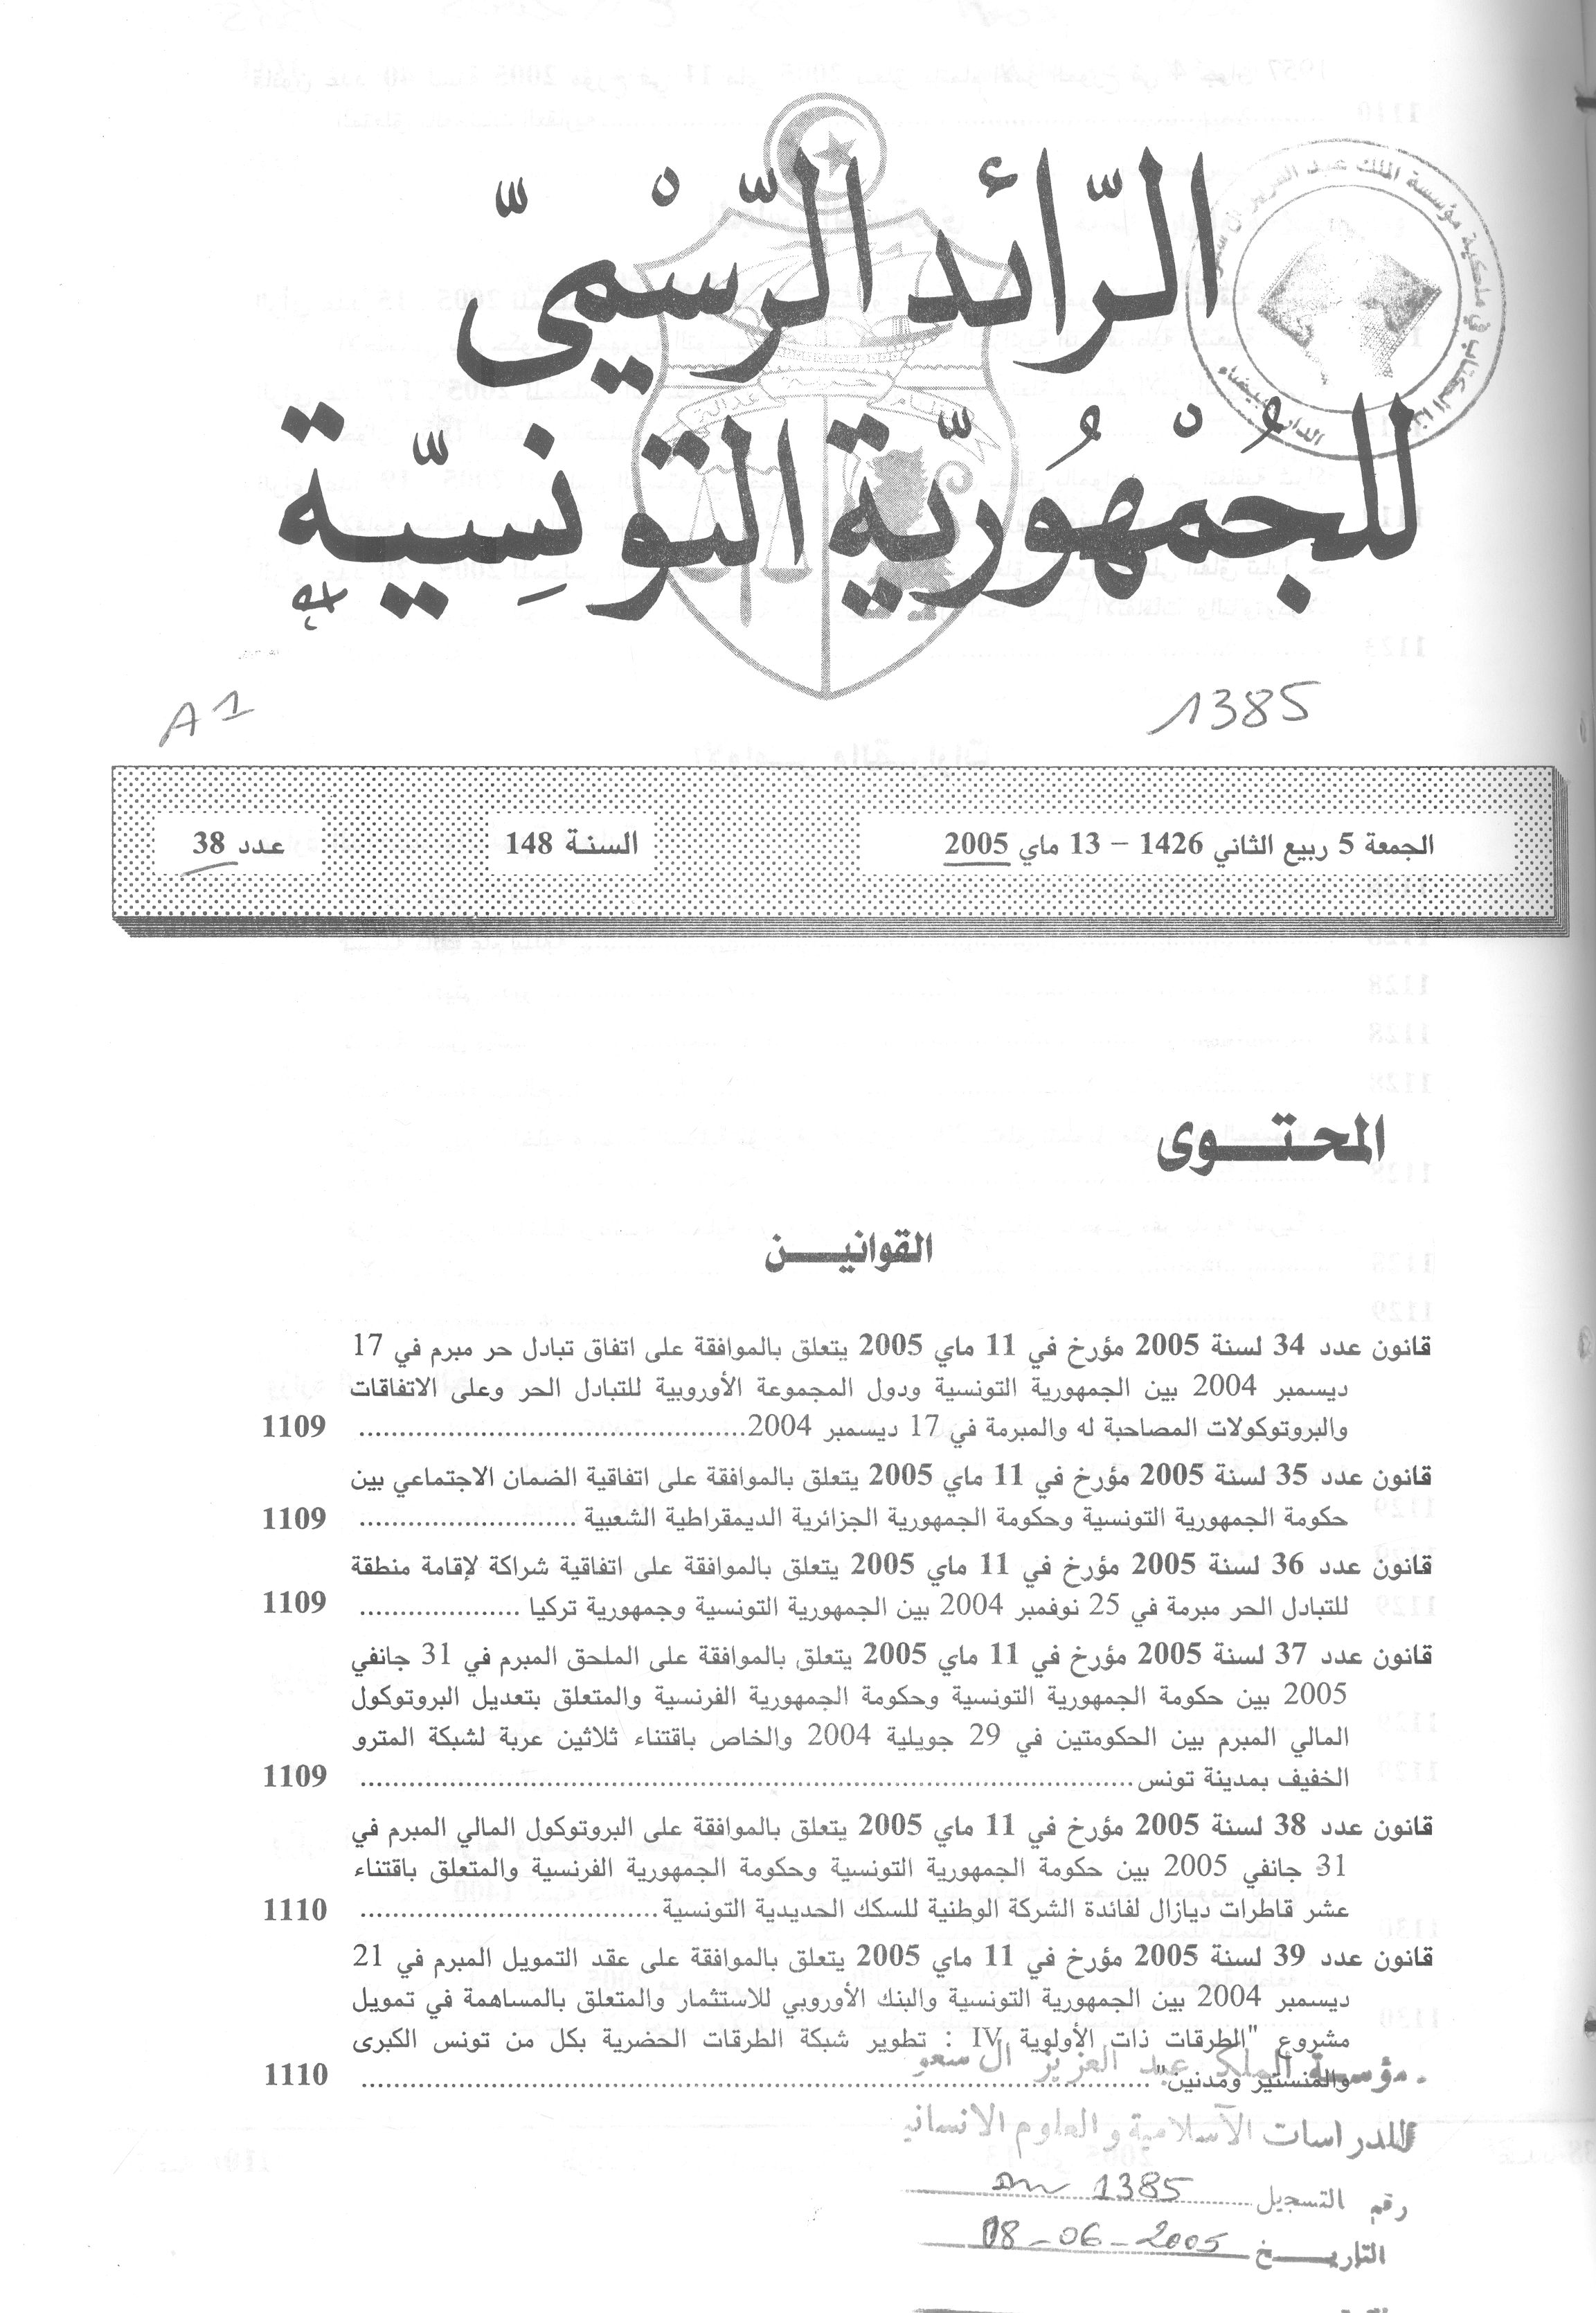 الرّائد الرّسْميّ
للجُمْهُوريّة التّونِسيّة
A1
1385
الجمعة 5 ربيع الثاني 1426 – 13 ماي 2005
السنة 148
عدد 38
المحتوى
القوانين
قانون عدد 34 لسنة 2005 مؤرخ في 11 ماي 2005 يتعلق بالموافقة على اتفاق تبادل حر مبرم في 17
ديسمبر 2004 بين الجمهورية التونسية ودول المجموعة الأوروبية للتبادل الحر وعلى الاتفاقات
والبروتوكولات المصاحبة له والمبرمة في 17 ديسمبر 2004 ........ 1109
قانون عدد 35 لسنة 2005 مؤرخ في 11 ماي 2005 يتعلق بالموافقة على اتفاقية الضمان الاجتماعي بين
حكومة الجمهورية التونسية وحكومة الجمهورية الجزائرية الديمقراطية الشعبية ........ 1109
قانون عدد 36 لسنة 2005 مؤرخ في 11 ماي 2005 يتعلق بالموافقة على اتفاقية شراكة لإقامة منطقة
للتبادل الحر مبرمة في 25 نوفمبر 2004 بين الجمهورية التونسية وجمهورية تركيا ........ 1109
قانون عدد 37 لسنة 2005 مؤرخ في 11 ماي 2005 يتعلق بالموافقة على الملحق المبرم في 31 جانفي
2005 بين حكومة الجمهورية التونسية وحكومة الجمهورية الفرنسية والمتعلق بتعديل البروتوكول
المالي المبرم بين الحكومتين في 29 جويلية 2004 والخاص باقتناء ثلاثين عربة لشبكة المترو
الخفيف بمدينة تونس ........ 1109
قانون عدد 38 لسنة 2005 مؤرخ في 11 ماي 2005 يتعلق بالموافقة على البروتوكول المالي المبرم في
31 جانفي 2005 بين حكومة الجمهورية التونسية وحكومة الجمهورية الفرنسية والمتعلق باقتناء
عشر قاطرات ديازال لفائدة الشركة الوطنية للسكك الحديدية التونسية ........ 1110
قانون عدد 39 لسنة 2005 مؤرخ في 11 ماي 2005 يتعلق بالموافقة على عقد التمويل المبرم في 21
ديسمبر 2004 بين الجمهورية التونسية والبنك الأوروبي للاستثمار والمتعلق بالمساهمة في تمويل
مشروع "الطرقات ذات الأولوية IV : تطوير شبكة الطرقات الحضرية بكل من تونس الكبرى
والمنستير ومدنين" ........ 1110
مؤسسة الملك عبد العزيز آل سعو
للدراسات الآسلامية والعلوم الانساني
رقم التسجيل 1385
التاريخ 08-06-2005